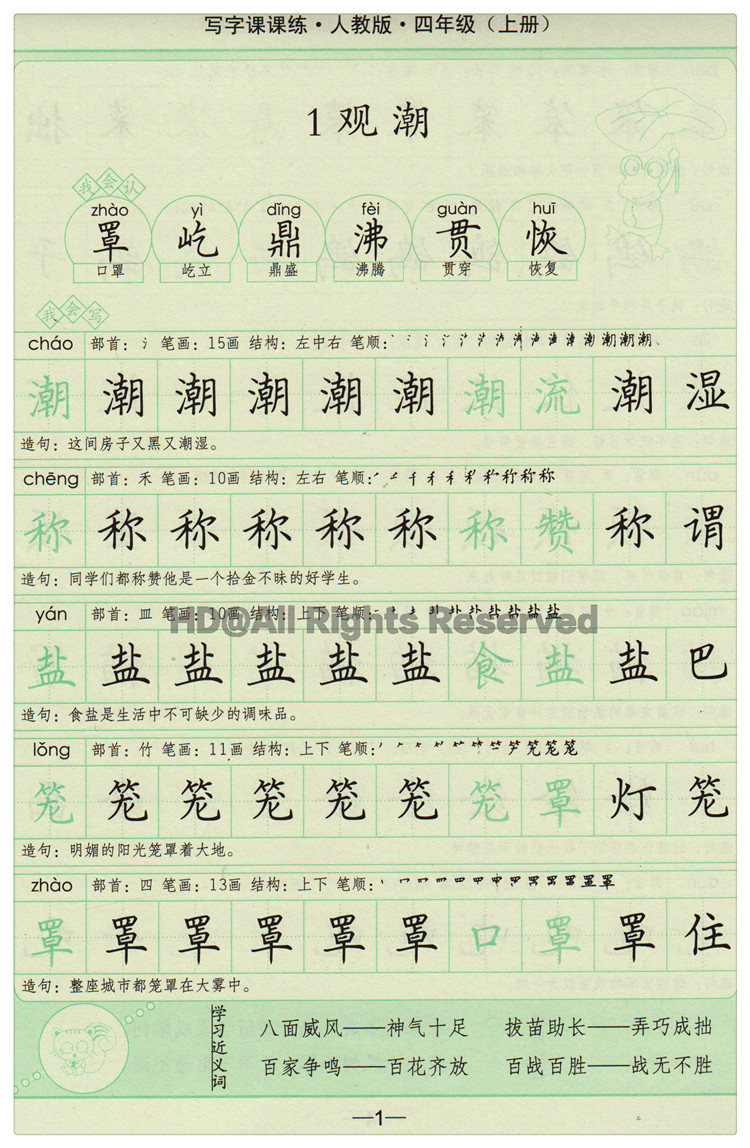 写字课课练·人教版·四年级（上册）
1 观 潮
我会认
zhào yì dǐng fèi guàn huī
罩 屹 鼎 沸 贯 恢
口罩 屹立 鼎盛 沸腾 贯穿 恢复
我会写
cháo 部首：氵 笔画：15画 结构：左中右 笔顺：
潮 潮 潮 潮 潮 潮 潮 流 潮 湿
造句：这间房子又黑又潮湿。
chēng 部首：禾 笔画：10画 结构：左右 笔顺：
称 称 称 称 称 称 称 赞 称 谓
造句：同学们都称赞他是一个拾金不昧的好学生。
yán 部首：皿 笔画：10画 结构：上下 笔顺：
HD@All Rights Reserved
盐 盐 盐 盐 盐 盐 食 盐 盐 巴
造句：食盐是生活中不可缺少的调味品。
lǒng 部首：竹 笔画：11画 结构：上下 笔顺：
笼 笼 笼 笼 笼 笼 笼 罩 灯 笼
造句：明媚的阳光笼罩着大地。
zhào 部首：四 笔画：13画 结构：上下 笔顺：
罩 罩 罩 罩 罩 罩 口 罩 罩 住
造句：整座城市都笼罩在大雾中。
学习近义词
八面威风——神气十足 拔苗助长——弄巧成拙
百家争鸣——百花齐放 百战百胜——战无不胜
—1—